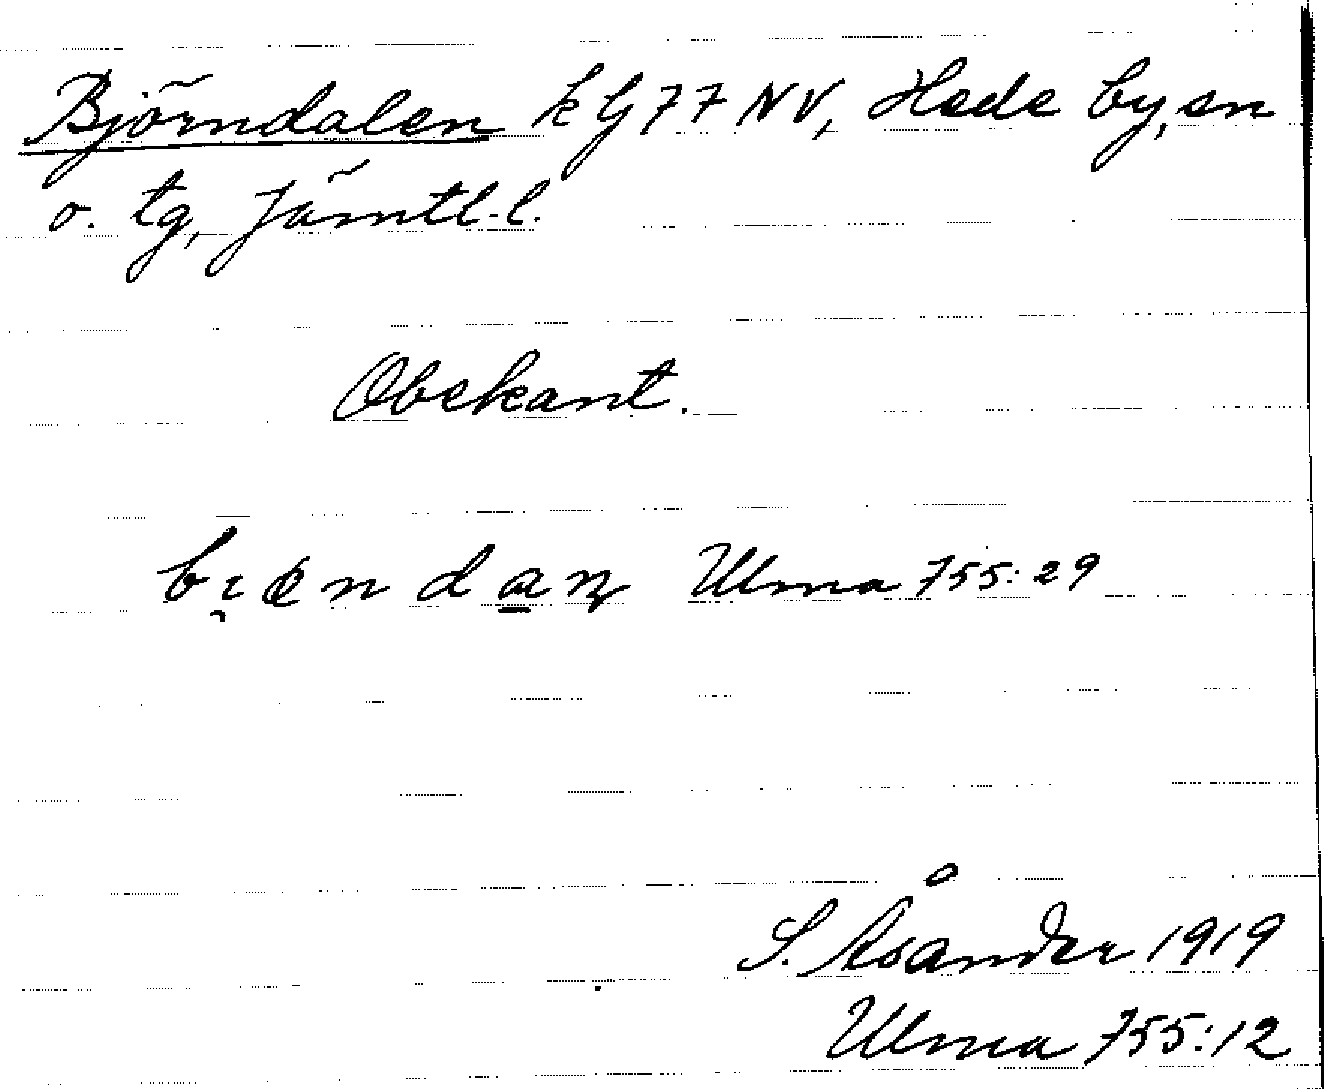 Björndalen k G 77 NV, Hede by, sn
o. tg, Jämtl. l.
Obekant.
Ulma 755:29
S. Åsander 1919
Ulma 755:12